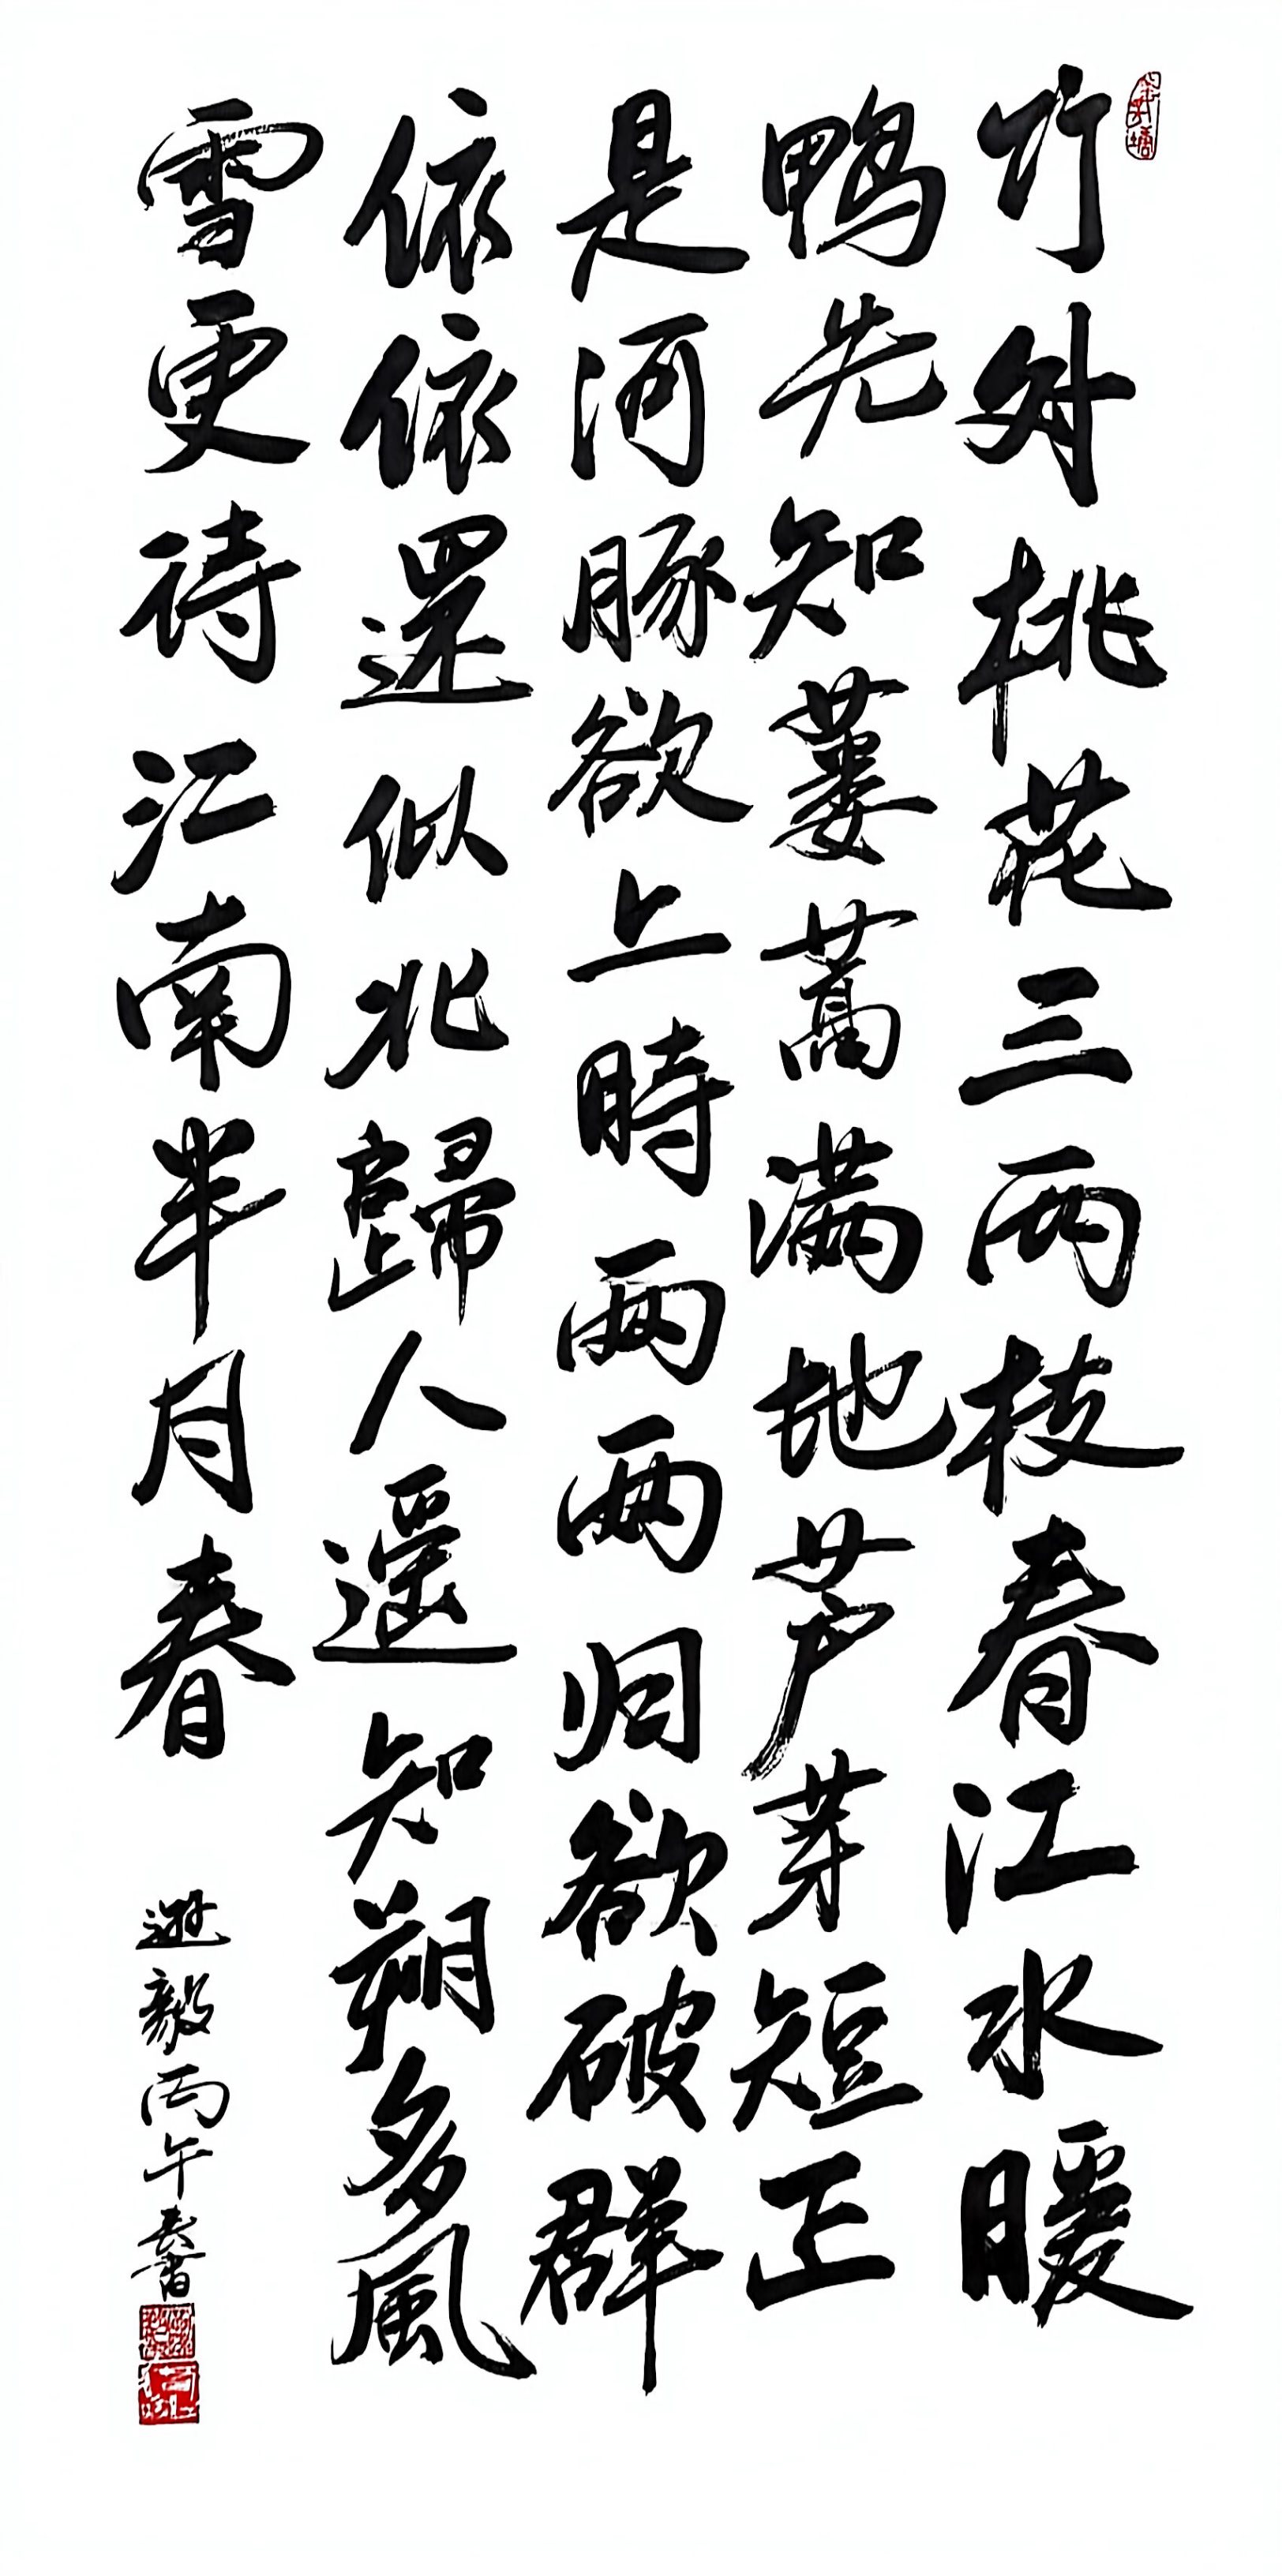 竹外桃花三两枝春江水暖
鴨先知蒌蒿满地芦芽短正
是河豚欲上時两两归欲破群
依依还似北歸人遥知朔多風
雪更待江南半月春
逊毅丙午春書